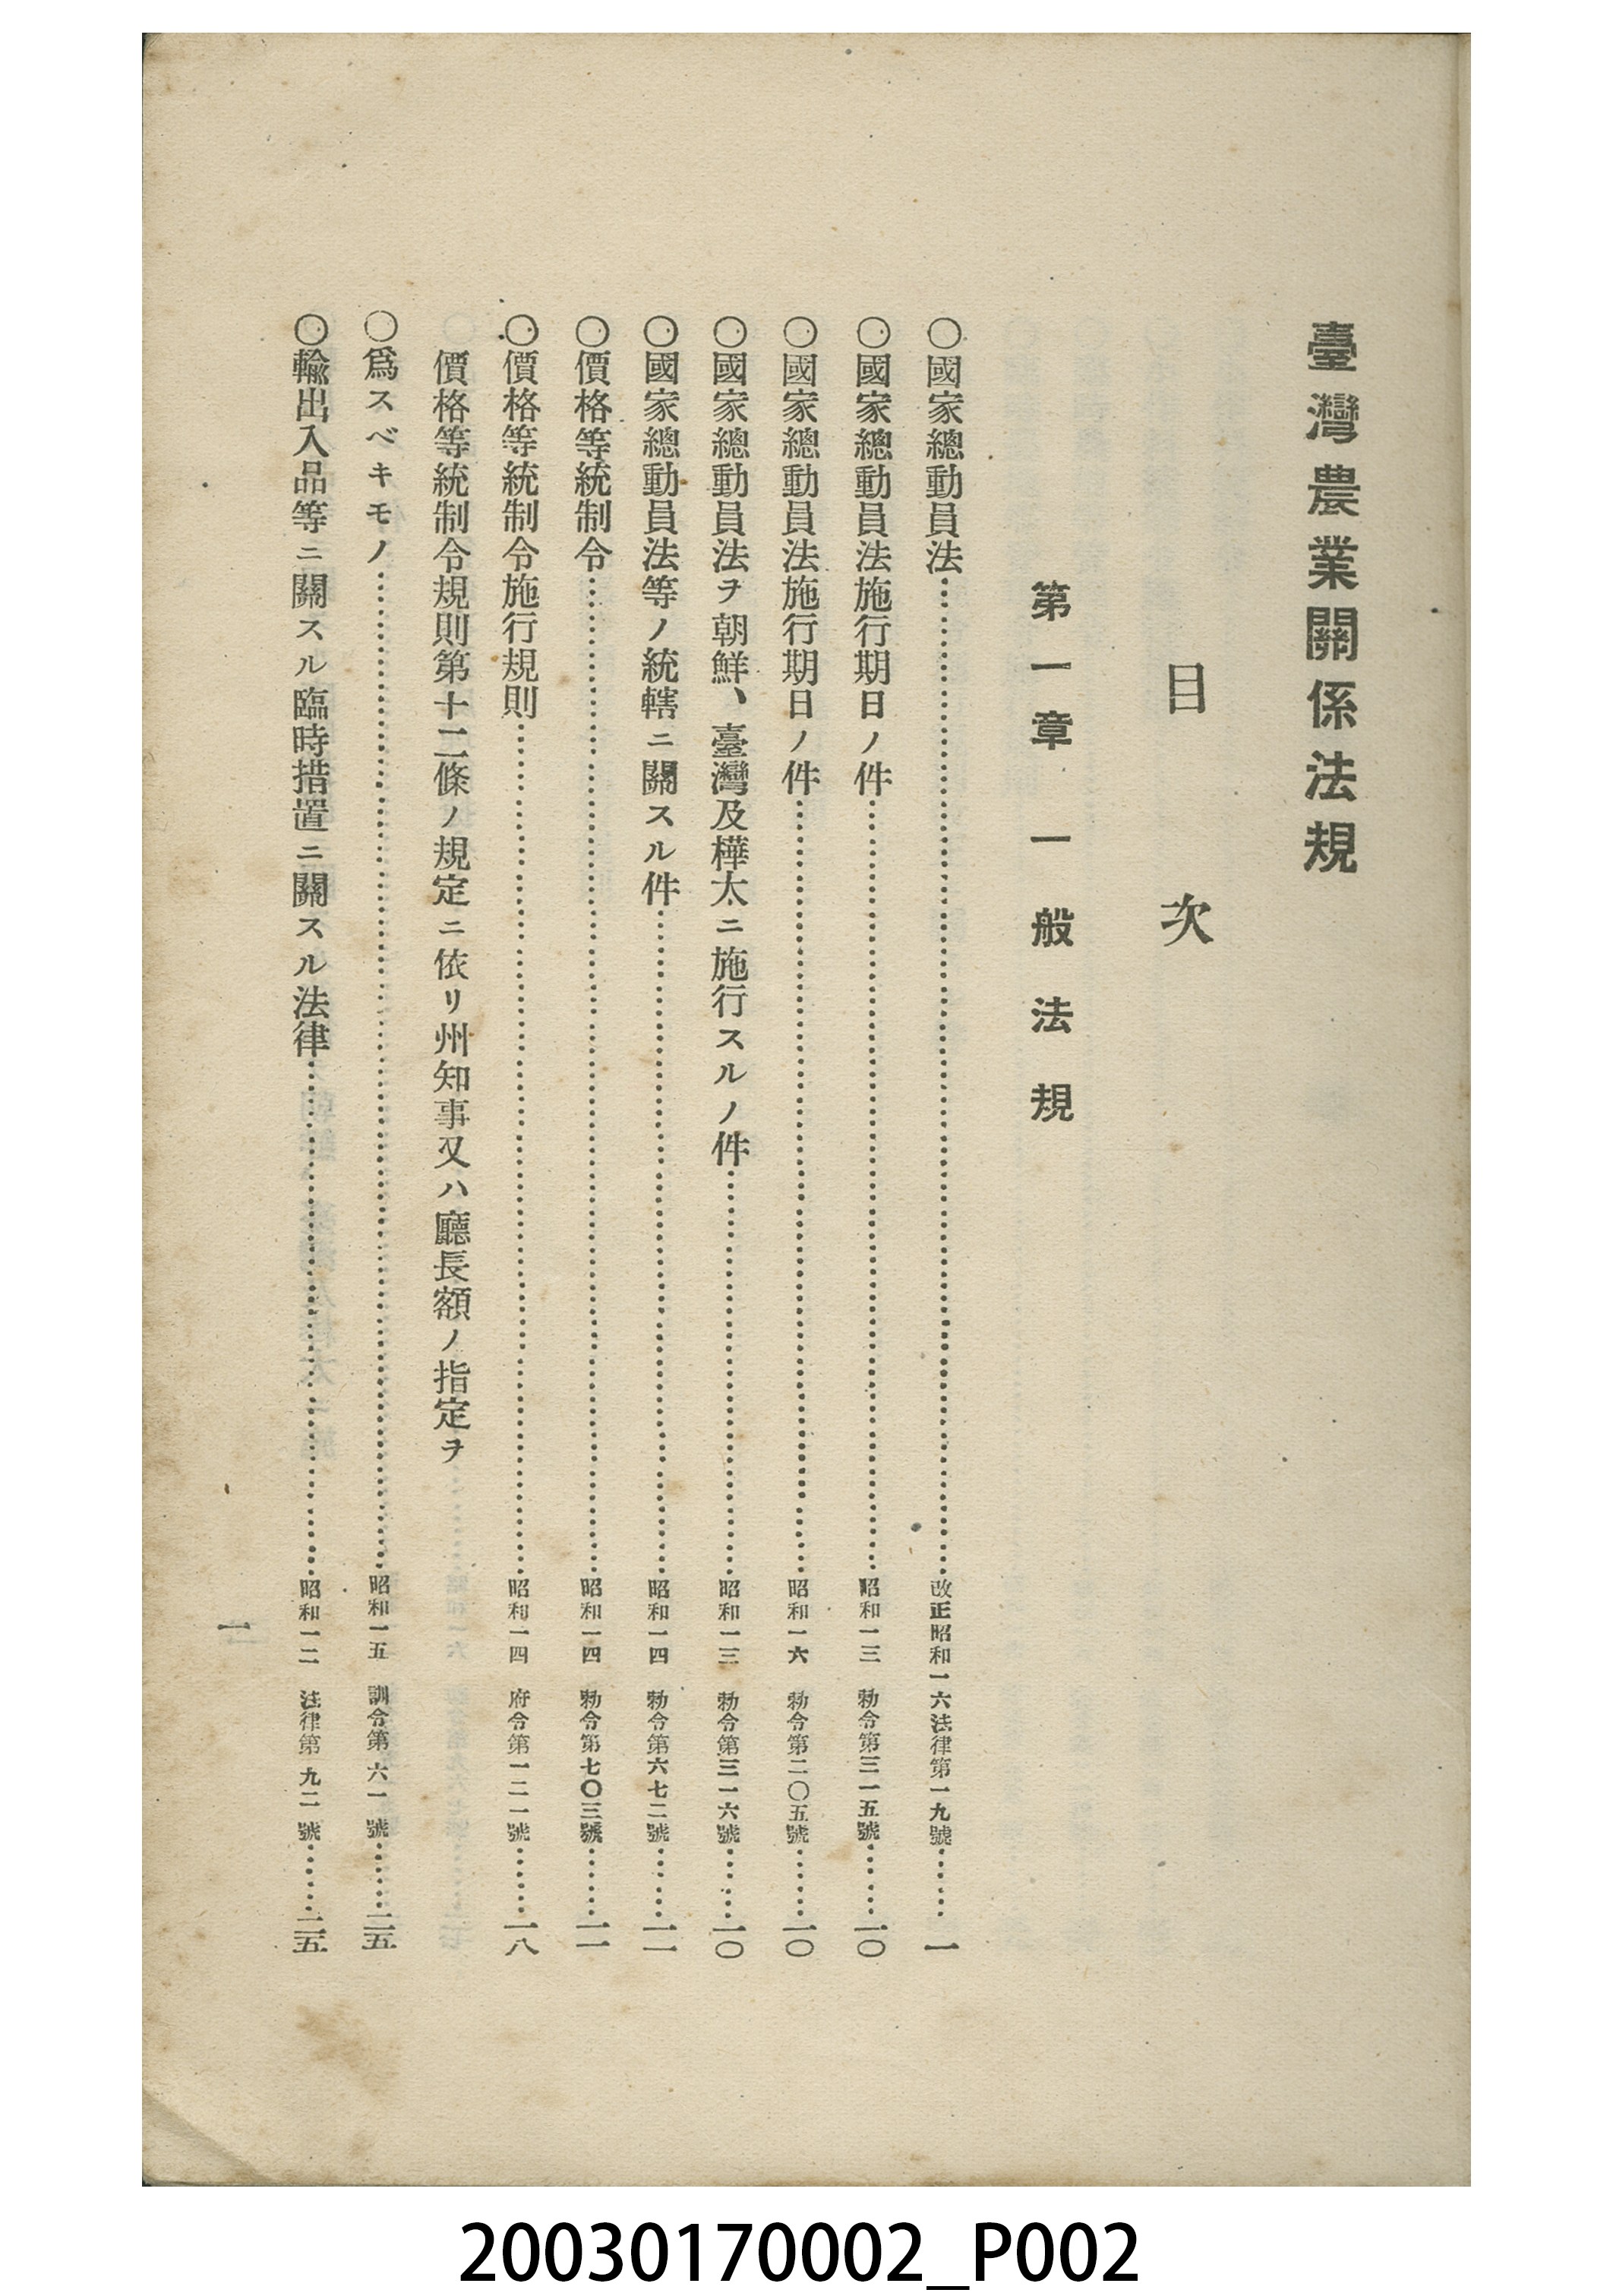 臺灣農業關係法規
目次
第一章 一般法規
〇國家總動員法……改正昭和一六法律第一九號……一
〇國家總動員法施行期日ノ件……昭和一三 勅令第三一五號……一〇
〇國家總動員法施行期日ノ件……昭和一六 勅令第二〇五號……一〇
〇國家總動員法ヲ朝鮮、臺灣及樺太ニ施行スルノ件……昭和一三 勅令第三一六號……一〇
〇國家總動員法等ノ統轄ニ關スル件……昭和一四 勅令第六七二號……一一
〇價格等統制令……昭和一四 勅令第七〇三號……一一
〇價格等統制令施行規則……昭和一四 府令第一二一號……一八
價格等統制令規則第十二條ノ規定ニ依リ州知事又ハ廳長額ノ指定ヲ
〇爲スベキモノ……昭和一五 訓令第六一號……二五
〇輸出入品等ニ關スル臨時措置ニ關スル法律……昭和一二 法律第九二號……二五
一
20030170002_P002